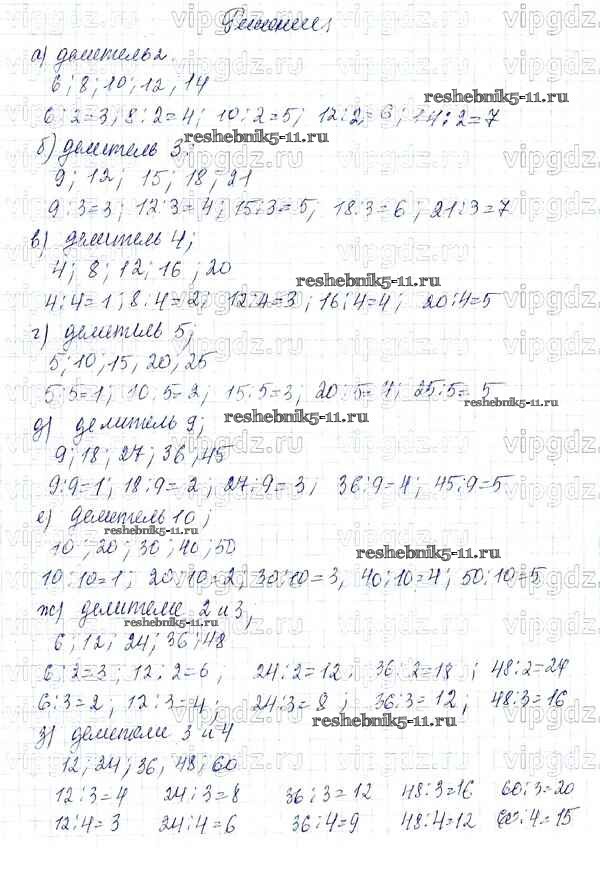 Решение:
а) делитель 2.
6; 8; 10; 12, 14
6:2=3; 8:2=4; 10:2=5; 12:2=6; 14:2=7
reshebnik5-11.ru
б) делитель 3;
9; 12; 15; 18; 21
9:3=3; 12:3=4; 15:3=5, 18:3=6; 21:3=7
в) делитель 4;
4; 8; 12; 16, 20
reshebnik5-11.ru
4:4=1; 8:4=2; 12:4=3; 16:4=4; 20:4=5
г) делитель 5;
5; 10; 15, 20, 25
5:5=1; 10:5=2; 15:5=3, 20:5=4; 25:5=5
reshebnik5-11.ru
д) делитель 9;
reshebnik5-11.ru
9; 18; 27; 36; 45
9:9=1; 18:9=2; 27:9=3; 36:9=4; 45:9=5
е) делитель 10;
reshebnik5-11.ru
10; 20; 30; 40; 50
reshebnik5-11.ru
10:10=1; 20:10=2, 30:10=3, 40:10=4; 50:10=5
ж) делители 2 и 3;
reshebnik5-11.ru
6; 12; 24; 36; 48
6:2=3; 12:2=6; 24:2=12; 36:2=18; 48:2=24
6:3=2; 12:3=4; 24:3=8; 36:3=12; 48:3=16
reshebnik5-11.ru
з) делители 3 и 4
12; 24; 36, 48; 60
12:3=4 24:3=8 36:3=12 48:3=16 60:3=20
12:4=3 24:4=6 36:4=9 48:4=12 60:4=15